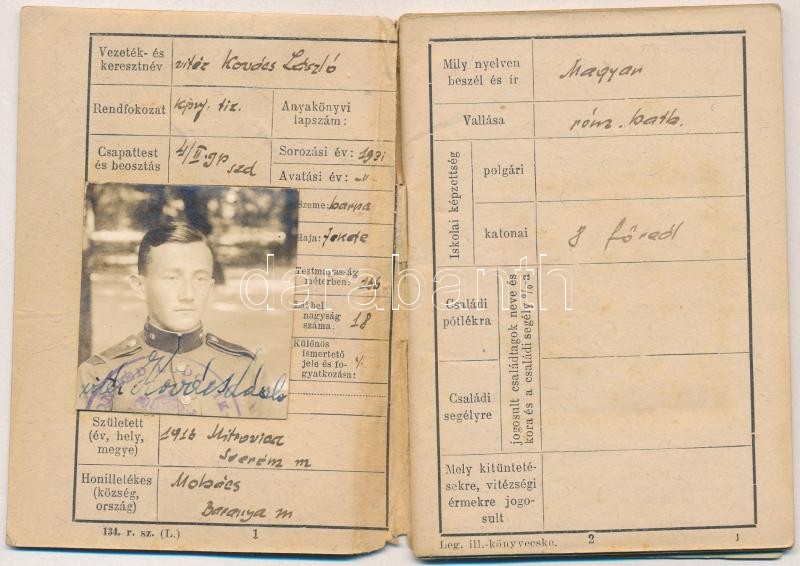 Vezeték- és
keresztnév
vitéz Kovács László
Rendfokozat
kprj. tiz.
Anyakönyvi
lapszám:
Csapattest
és beosztás
4/II. gp
szd
Sorozási év: 1931
Avatási év: -"-
Szeme: barna
Haja: fekete
Testmagasság
méterben: 166
Lábbel
nagyság
száma: 18
Különös
ismertető
jele és fo-
gyatkozása: %
vitéz Kovács László
Született
(év, hely,
megye)
1916 Mitrovica
Szerém m
Honilletékes
(község,
ország)
Mohács
Baranya m
134. r. sz. (L.)
1
Mily nyelven
beszél és ír
Magyar
Vallása
róm. kath.
Iskolai képzettség
polgári
katonai
8 főreál
Családi
pótlékra
Családi
segélyre
jogosult családtagok neve és
kora és a családi segély %-a
Mely kitünteté-
sekre, vitézségi
érmekre jogo-
sult
Leg. ill.-könyvecske.
2
1
darabanth